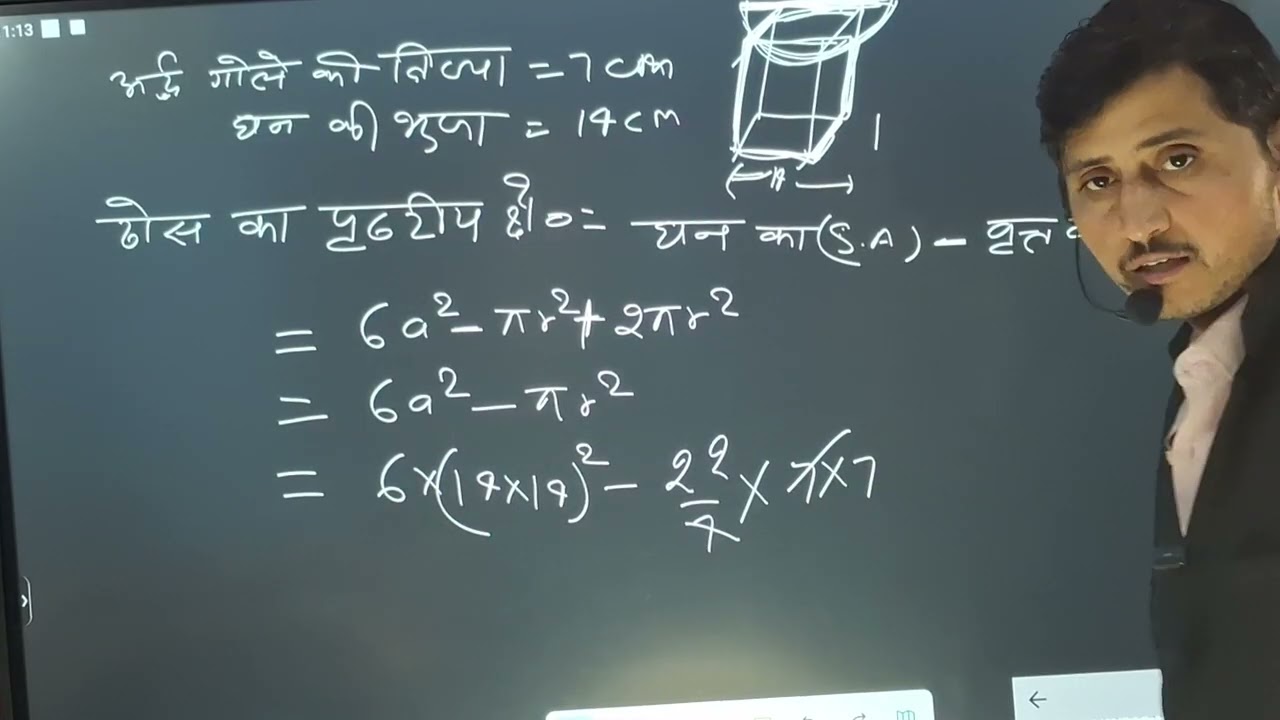 1:13
अर्द्ध गोले की त्रिज्या = 7 cm
घन की भुजा = 14 cm
14
ठोस का पृष्ठीय क्षे० = घन का (S.A) - वृत्त
= 6a² - πr² + 2πr²
= 6a² - πr²
= 6×(14×14)² - 22/7 × 7×7